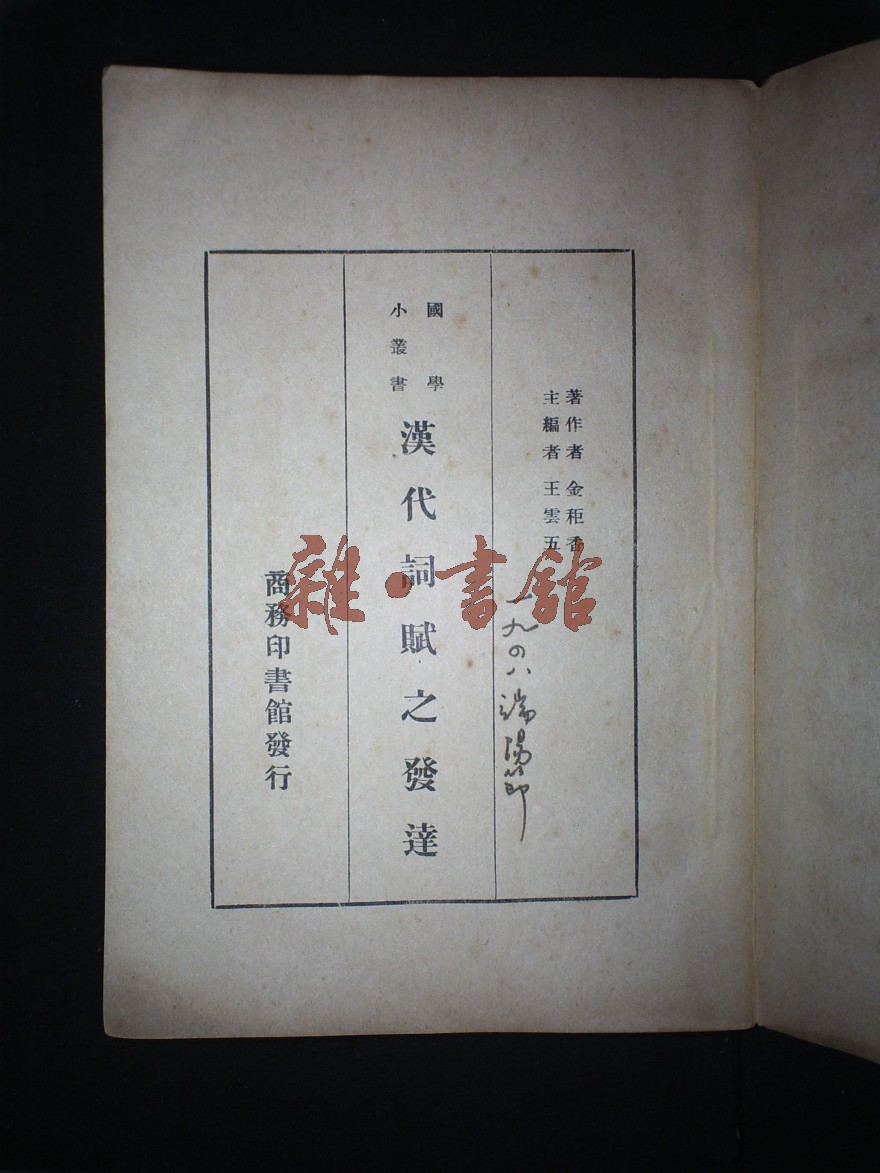 著作者 金秬香
主編者 王雲五
一九四八端陽節
國學
小叢書
漢代詞賦之發達
商務印書館發行
雜·書館